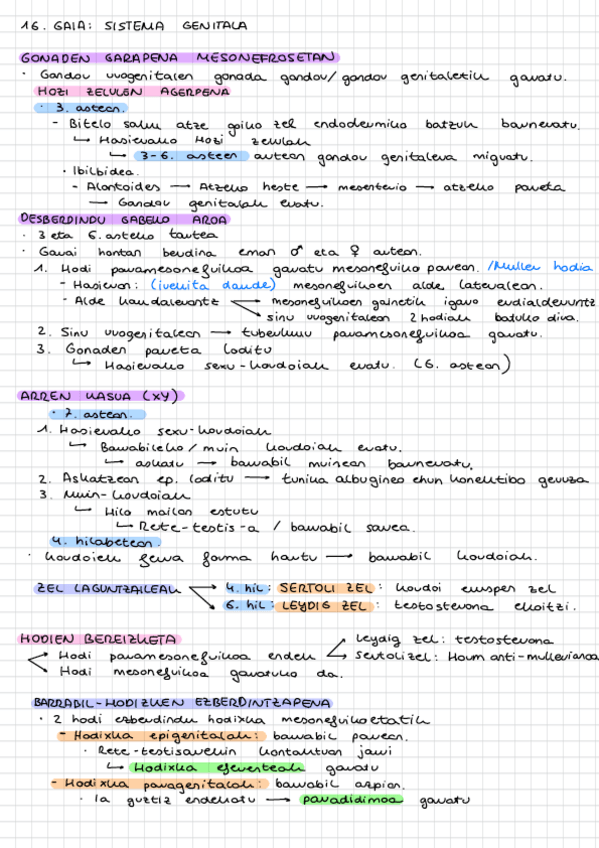 16. GAIA: SISTEMA GENITALA
GONADEN GARAPENA MESONEFROSETAN
· Gandor urogenitalen gonada gandor/gandor genitaletik garatu.
HOZI ZELULEN AGERPENA
· 3. astean.
- Bitelo saku atze goiko zel endodermiko batzuk barneratu.
↳ Hasierako Hozi zelulak
↳ 3-6. astean artean gandor genitalera migratu.
· Ibilbidea.
- Alantoides → Atzeko heste → mesenterio → atzeko pareta
→ Gandor genitalak eratu.
DESBERDINDU GABEKO AROA
· 3 eta 6. asteko tartea
· Garai hontan berdina eman ♂ eta ♀ artean.
1. Hodi paramesonefrikoa garatu mesonefriko parean. /Muller hodia
- Hasieran: (irekita daude) mesonefrikoen alde lateralean.
- Alde kaudalerantz → mesonefrikoen gainetik igaro erdialderuntz
→ sinu urogenitalean 2 hodiak batuko dira.
2. Sinu urogenitalean → tuberkulu paramesonefrikoa garatu.
3. Gonaden pareta loditu
↳ Hasierako sexu-kordoiak eratu. (6. astean)
ARREN KASUA (XY)
· 7. astean.
1. Hasierako sexu-kordoiak
↳ Barrabileko/muin kordoiak eratu.
↳ askatu → barrabil muinean barneratu.
2. Askatzean ep. loditu → tunika albugineo ehun konektibo geruza
3. Muin-kordoiak
↳ Hilo mailan estutu
↳ Rete-testis-a / barrabil sarea.
4. hilabetean.
· Kordoiek ferra forma hartu → barrabil kordoiak.
ZEL LAGUNTZAILEAK → 4. hil: SERTOLI ZEL: kordoi eusper zel
→ 6. hil: LEYDIG ZEL: testosterona ekoitzi.
HODIEN BEREIZKETA
→ Hodi paramesonefrikoa endek → Leydig zel: testosterona
→ Sertoli zel: Horm anti-mullerianoa
→ Hodi mesonefrikoa garatuko da.
BARRABIL-HODIZKEN EZBERDINTZAPENA
· 2 hodi ezberdindu hodixka mesonefrikoetatik
- Hodixka epigenitalak: barrabil parean.
· Rete-testisarekin kontaktuan jarri
↳ Hodixka eferenteak garatu
- Hodixka paragenitalak: barrabil azpian.
· Ia guztiz endekatu → paradidimoa garatu